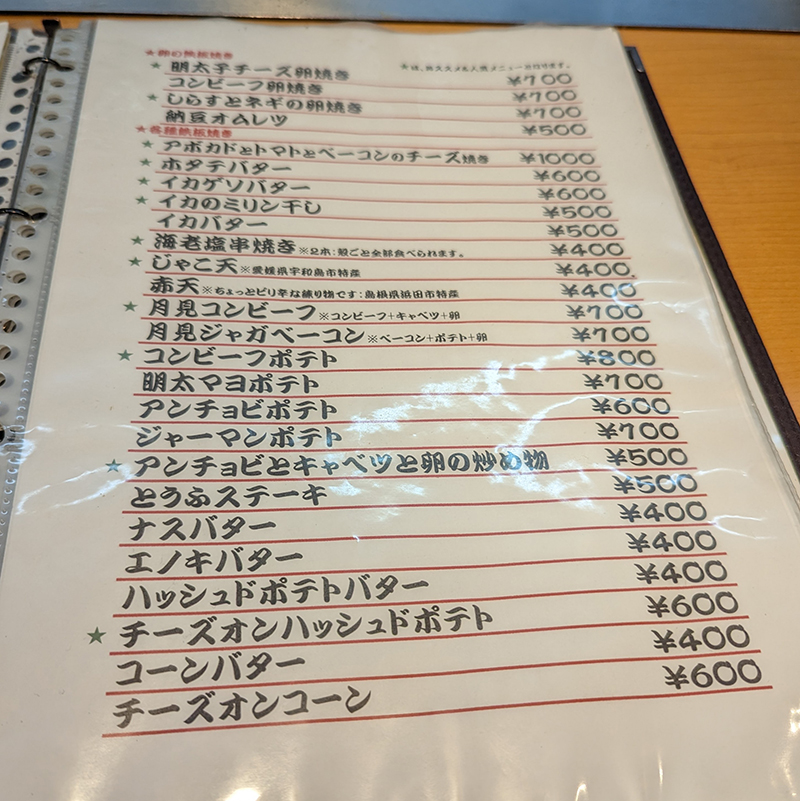 ★卵の鉄板焼き
★は、おススメ&人気メニューになります。
★明太子チーズ卵焼き ¥700
コンビーフ卵焼き ¥700
★しらすとネギの卵焼き ¥700
納豆オムレツ ¥500
★各種鉄板焼き
★アボカドとトマトとベーコンのチーズ焼き ¥1000
★ホタテバター ¥600
★イカゲソバター ¥600
★イカのミリン干し ¥500
イカバター ¥500
★海老塩串焼き ※2本:殻ごと全部食べられます。 ¥400
★じゃこ天 ※愛媛県宇和島市特産 ¥400
赤天 ※ちょっとピリ辛な練り物です:島根県浜田市特産 ¥400
★月見コンビーフ ※コンビーフ+キャベツ+卵 ¥700
月見ジャガベーコン ※ベーコン+ポテト+卵 ¥700
★コンビーフポテト ¥800
明太マヨポテト ¥700
アンチョビポテト ¥600
ジャーマンポテト ¥700
★アンチョビとキャベツと卵の炒め物 ¥500
とうふステーキ ¥500
ナスバター ¥400
エノキバター ¥400
ハッシュドポテトバター ¥400
★チーズオンハッシュドポテト ¥600
コーンバター ¥400
チーズオンコーン ¥600